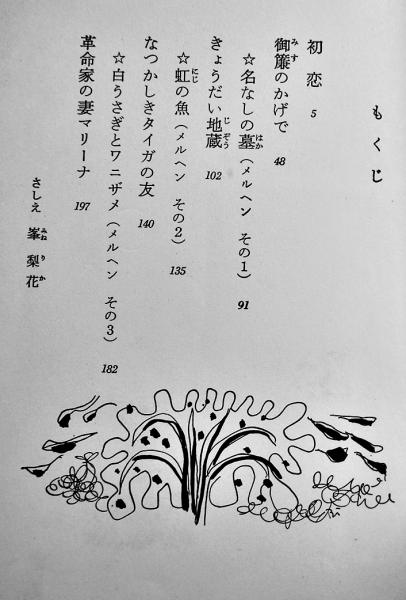 もくじ
初恋 5
御簾のかげで 48
☆名なしの墓（メルヘン その1） 91
きょうだい地蔵 102
☆虹の魚（メルヘン その2） 135
なつかしきタイガの友 140
☆白うさぎとワニザメ（メルヘン その3） 182
革命家の妻マリーナ 197
さしえ 峯梨花